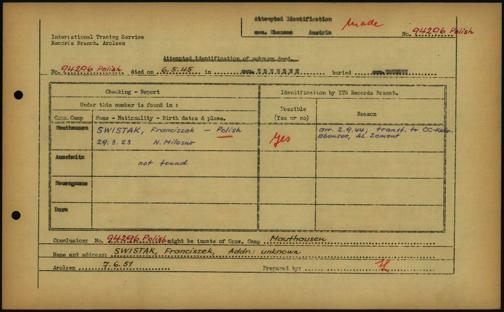 Attempted Identification made
con. Ebensee Austria
No. 94296 Polish
International Tracing Service
Records Branch, Arolsen
Attempted identification of unknown dead.
No. 94296 Polish died on 6.5.45 in con. EBENSEE buried
Checking - Report
Identification by ITS Records Branch.
Under this number is found in:
Possible
(Yes or no)
Reason
Conc. Camp Name - Nationality - Birth dates & place.
Mauthausen SWISTAK, Franciszek - Polish
29.3.23 N. Milosnr
Yes
arr. 2.9.44, transf. to CC-Kdo.
Ebensee, AL Zement
Auschwitz not found
Neuengamme
Dora
Conclusion: No. 94296 Polish might be inmate of Conc. Camp Mauthausen
Name and address: SWISTAK, Franciszek, Addr: unknown
Arolsen 7.6.51 Prepared by: